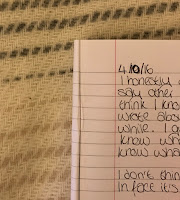 4/10/16
I honestly
say other
think I kno
wrote abo
while. I g
know wh
know wha
I don't thin
In fact it's